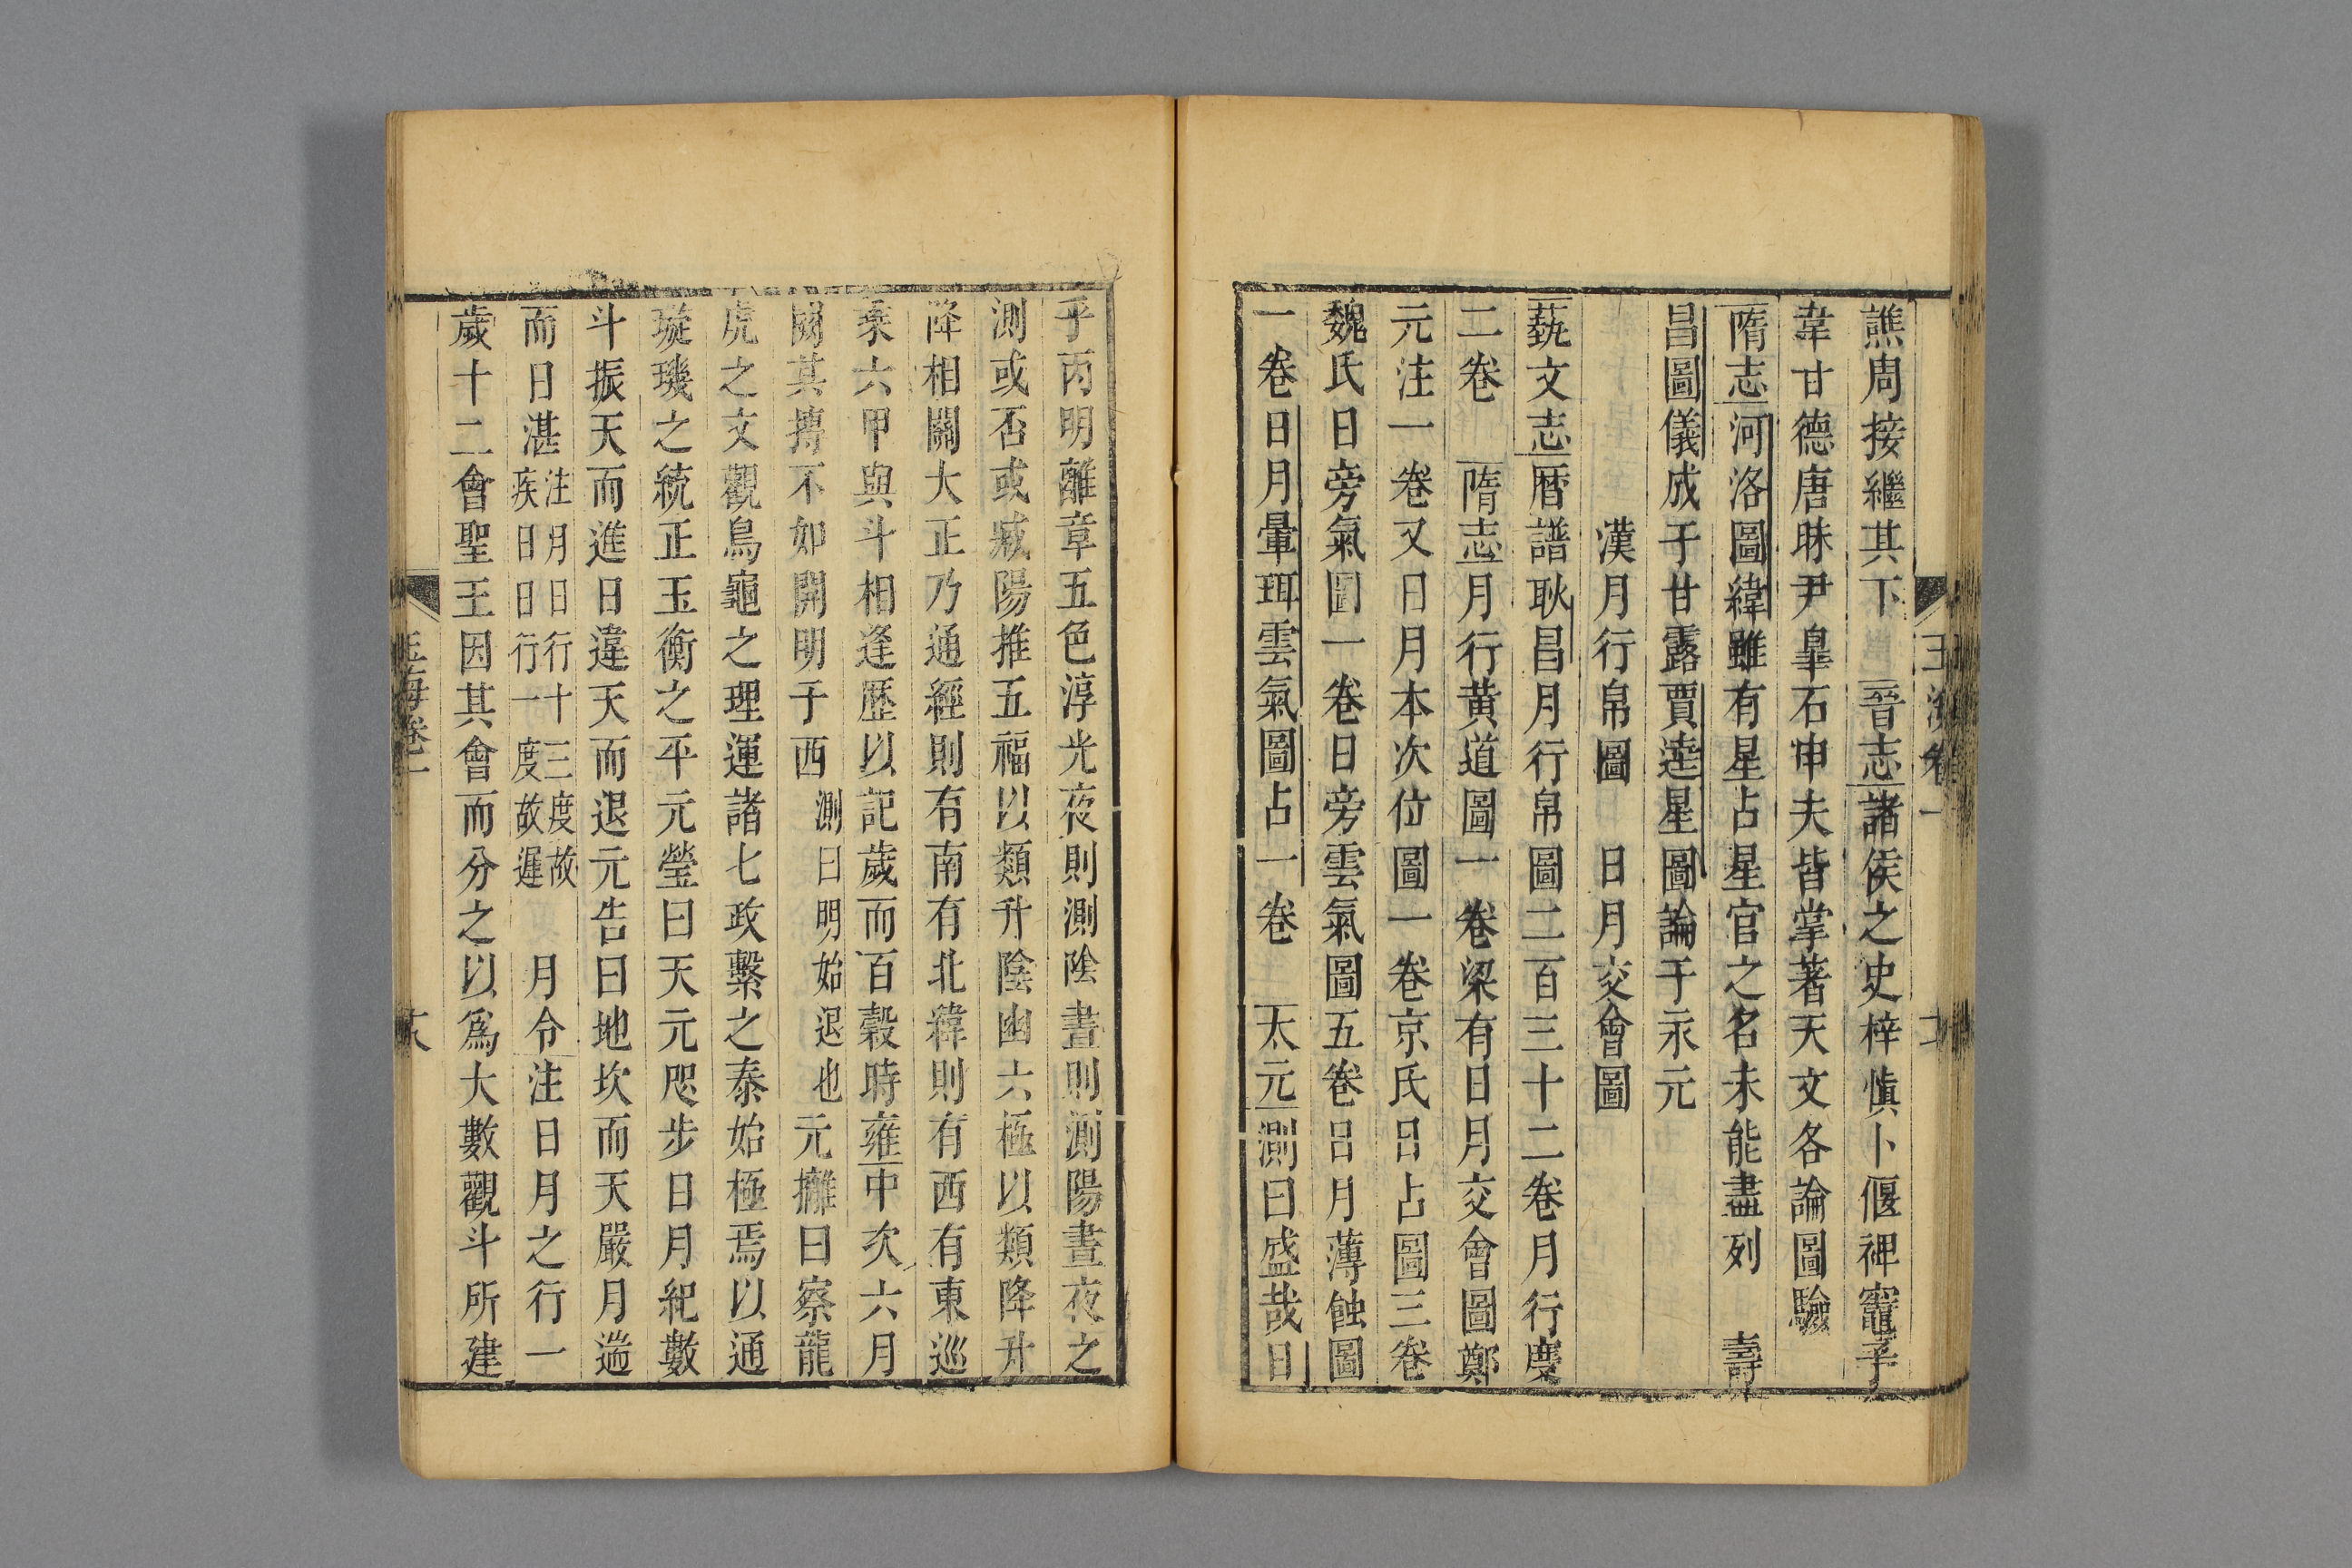 譙周接繼其下　晉志諸侯之史梓慎卜偃禆竈子
韋甘德唐昧尹臯石申夫皆掌著天文各論圖驗
隋志河洛圖緯雖有星占星官之名未能盡列　壽
昌圖儀成于甘露賈逵星圖論于永元
漢月行帛圖　日月交會圖
藝文志曆譜耿昌月行帛圖二百三十二卷月行度
二卷　隋志月行黄道圖一卷梁有日月交會圖鄭
元注一卷又日月本次位圖一卷京氏日占圖三卷
魏氏日旁氣圖一卷日旁雲氣圖五卷日月薄蝕圖
一卷日月暈珥雲氣圖占一卷　太元測曰盛哉日
乎丙明離章五色淳光夜則測陰晝則測陽晝夜之
測或否或臧陽推五福以類升陰幽六極以類降升
降相關大正乃通經則有南有北緯則有西有東巡
乘六甲與斗相逢歷以記歲而百穀時雍中次六月
闕其摶不如開明于西測曰明始退也元攡曰察龍
虎之文觀鳥龜之理運諸七政繫之泰始極焉以通
璇璣之統正玉衡之平元瑩曰天元咫步日月紀數
斗振天而進日違天而退元告曰地坎而天嚴月遄
而日湛注月日行十三度故疾日日行一度故遲　月令注日月之行一
歲十二會聖王因其會而分之以爲大數觀斗所建
玉海卷一